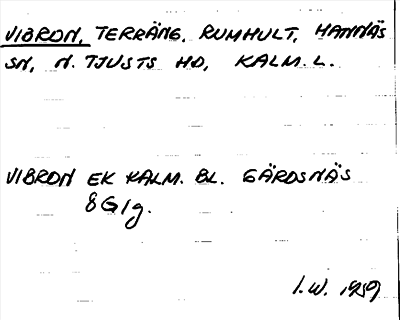 VIBRON, TERRÄNG, RUMHULT, HANNÄS
SN, N. TJUSTS HD, KALM. L.
VIBRON EK KALM. BL. GÄRDSNÄS
8G1g.
I.W. 1959